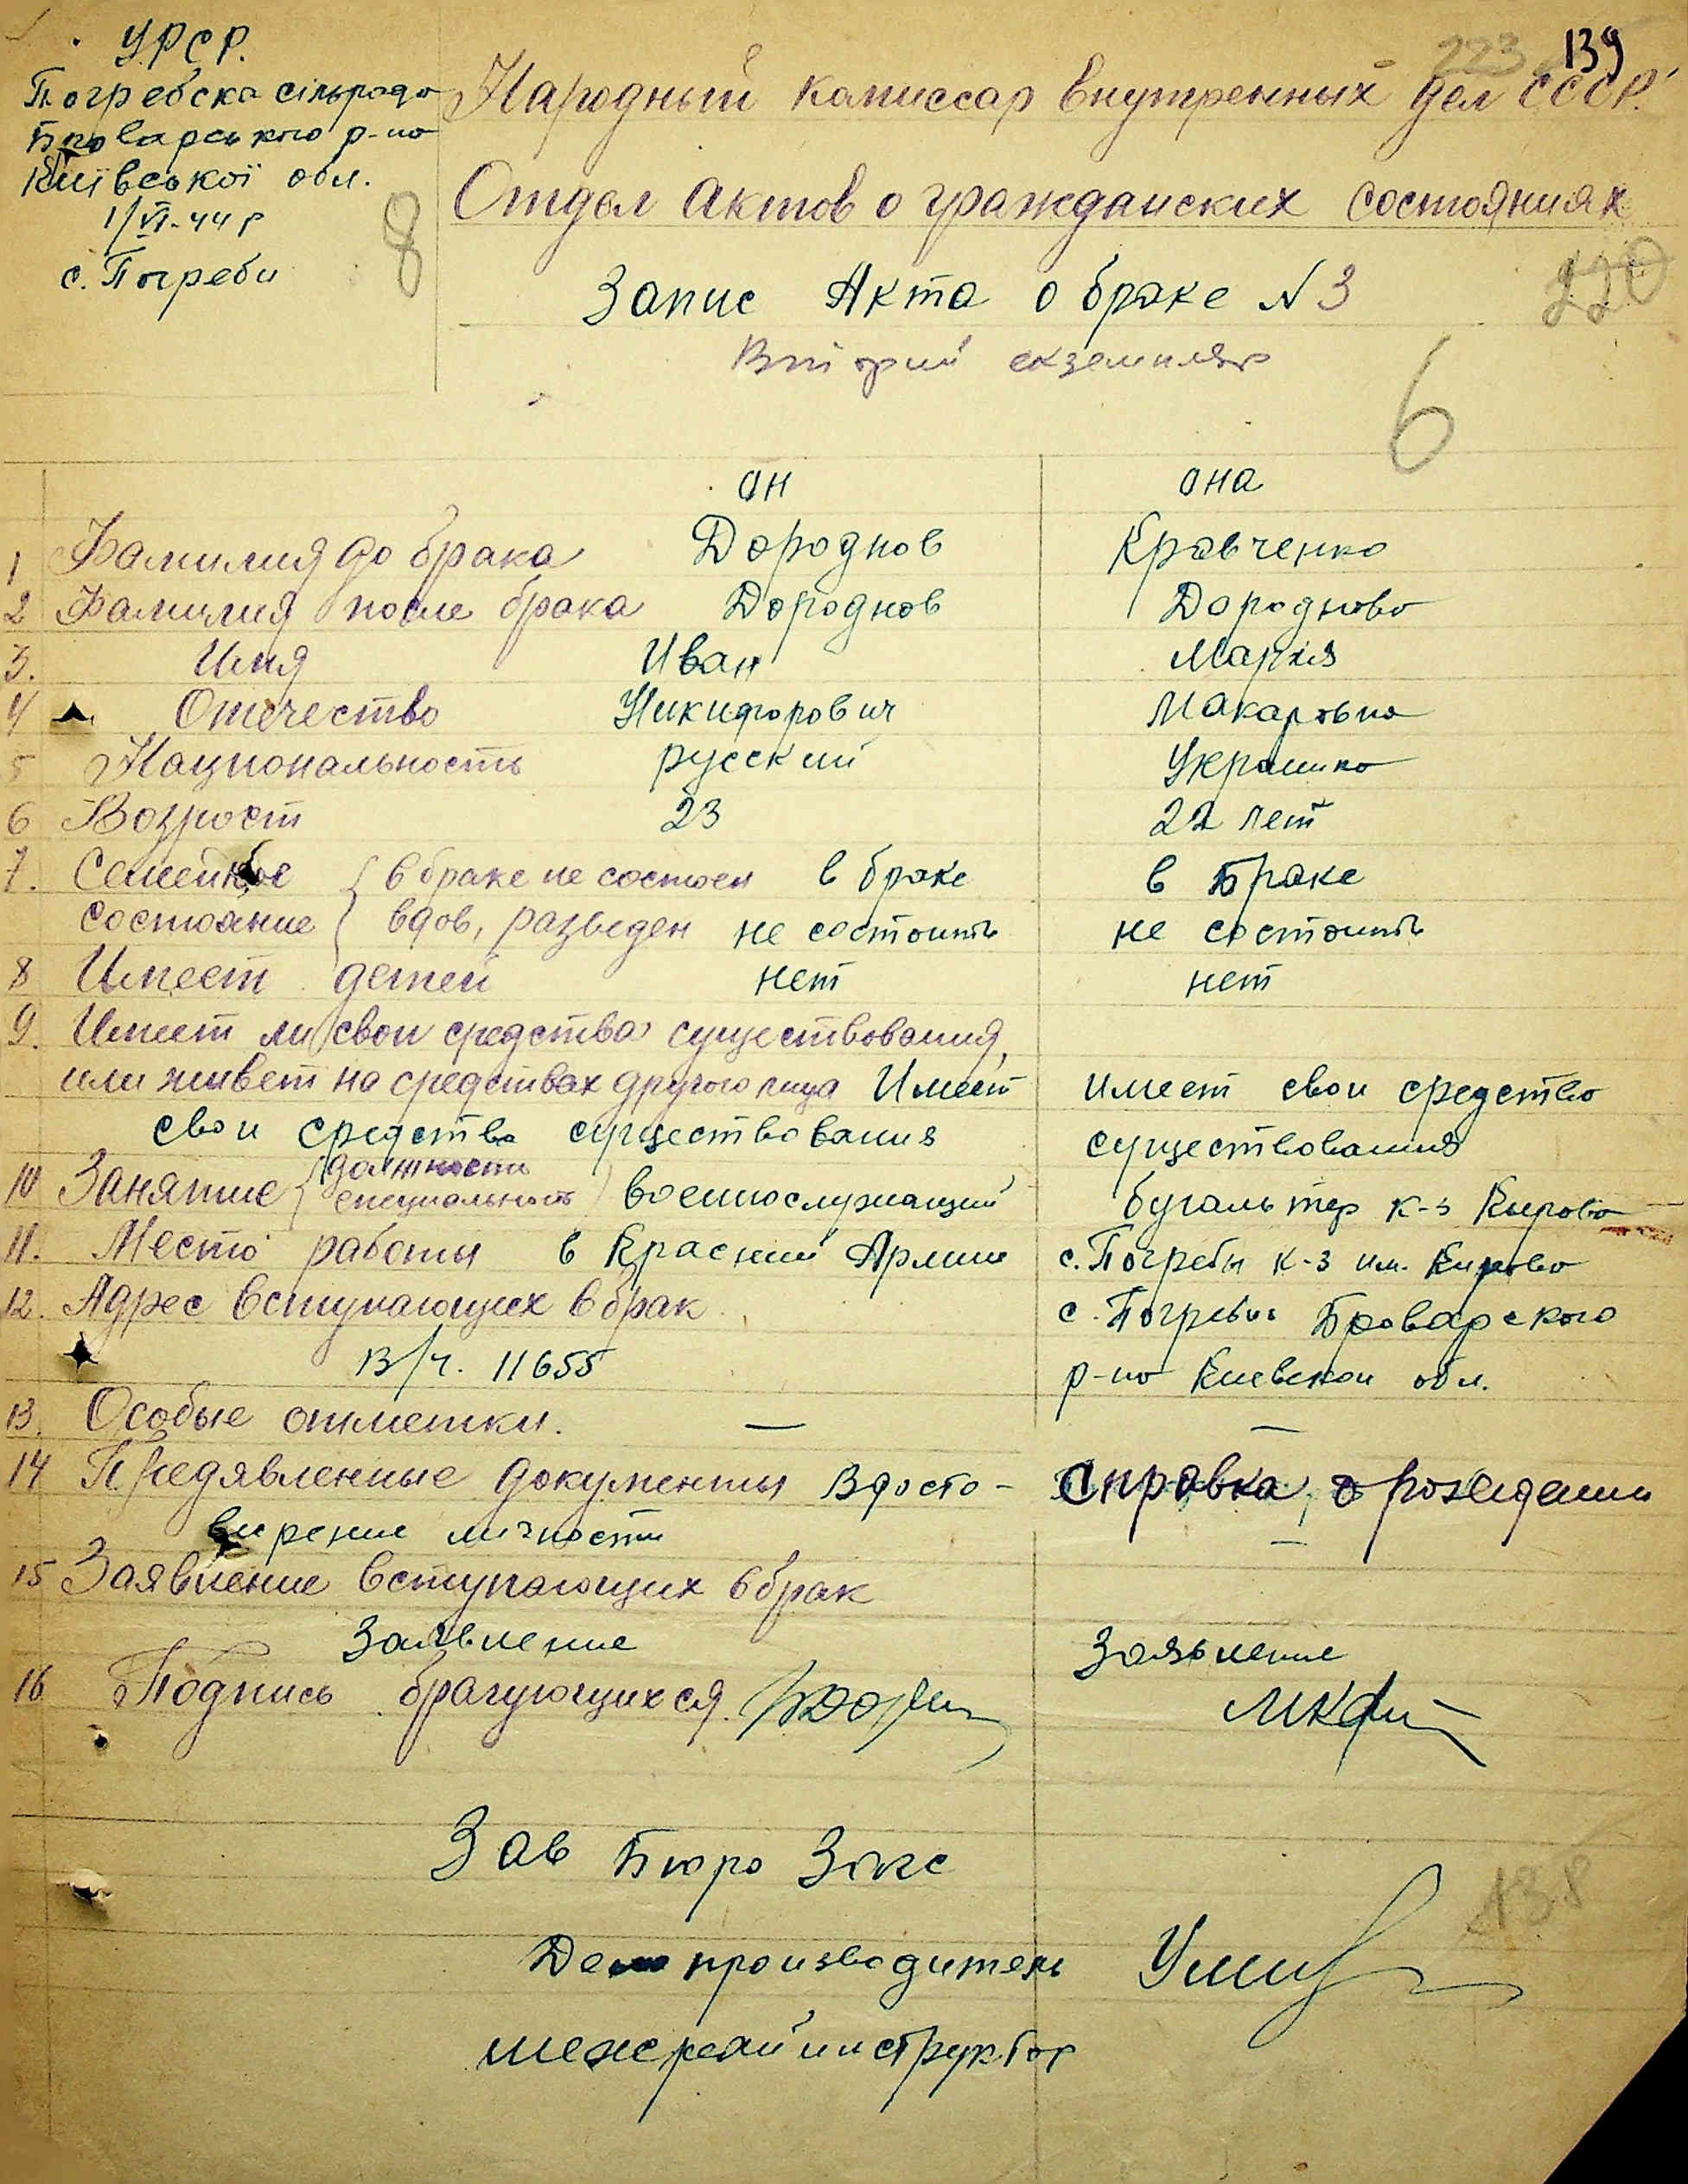 У.Р.С.Р.
Погребска сільрада
Броварського р-на
Київської обл.
1/VI-44 р
с. Погреби
8
223 139
Народный комиссар внутренных дел СССР.
Отдел актов о гражданских состояниях
220
Запис Акта о браке N 3
Вторий екземпляр
6
он она
1 Фамилия до брака Дороднов Кравченко
2 Фамилия после брака Дороднов Дороднова
3. Имя Иван Мария
4 Отечество Никифорович Макаровна
5 Национальность русский Украинка
6 Возрост 23 22 лет
7. Семейное { в браке не состоел в браке в браке
состояние { вдов, разведен не состоить не состоить
8 Имеет детей нет нет
9. Имеет ли свои средства существования,
или живет на средствах другого лица Имеет имеет свои средства
свои средства существования существования
10 Занятие { должности специальность } военнослужащий бугальтер к-з Кирова
11. Место работы в Красний Армии с. Погребы к-з им. Кирова
12. Адрес вступающих в брак с. Погребы Броварского
В/ч. 11655 р-на Киевской обл.
13. Особые отметки. — —
14 Предявленные документы Вдосто- Справка о рождении
верение личности —
15 Заявление вступающих в брак
Заявление Заявление
16 Подпись брагующихся
Зав Бюро Загс
138
Делопроизводитель
межрайинструктор